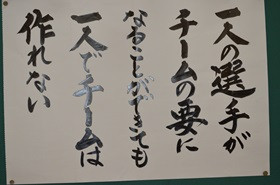 一人の選手が
チームの要に
なることができても
一人でチームは
作れない